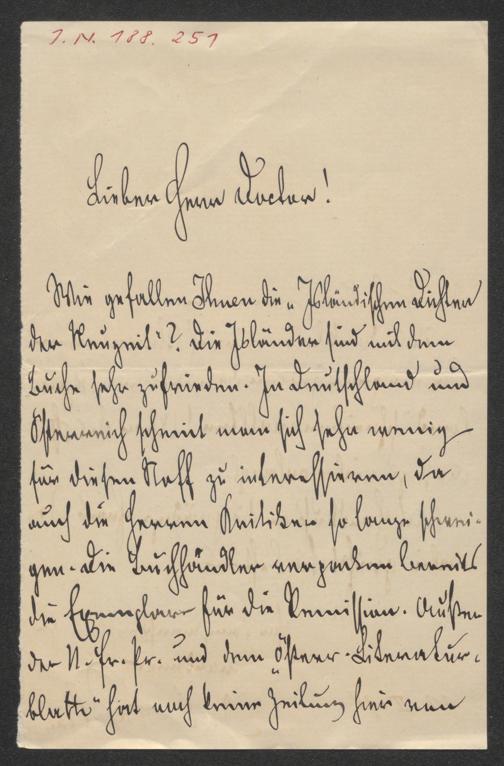 J. N. 188. 251
Lieber Herr Doctor!
Wie gefallen Ihnen die „Isländischen Dichter
der Neuzeit"? Die Isländer sind mit dem
Buche sehr zufrieden. In Deutschland und
Österreich scheint man sich sehr wenig
für diesen Stoff zu interessieren, da
auch die Herren Kritiker so lange schwei-
gen. Die Buchhändler verpacken bereits
die Exemplare für die Remission. Außer
der N. Fr. Pr. und dem „Österr. Literatur-
blatte" hat noch keine Zeitung hier von